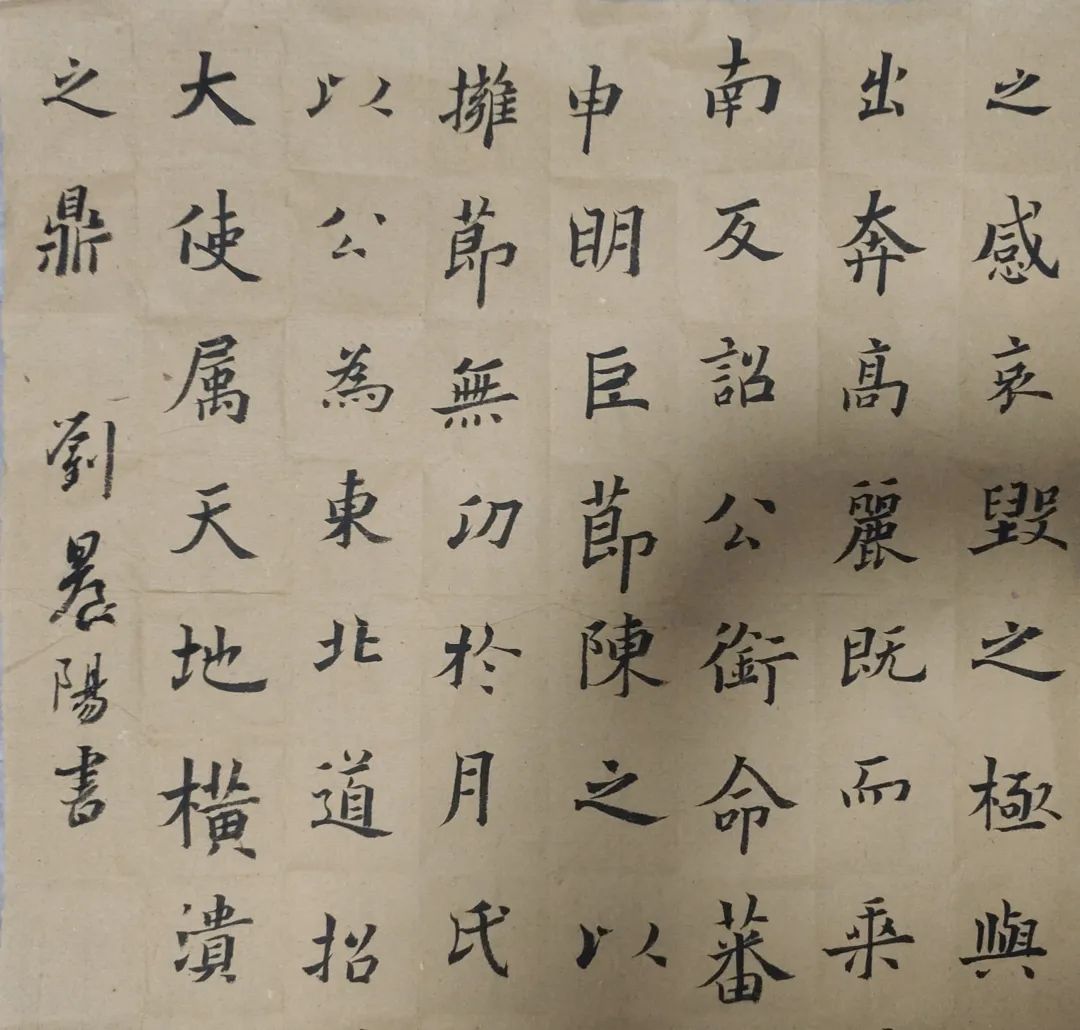 之感哀毀之極與
出奔高麗既而乘
南反詔公銜命蕃
申明臣節陳之以
擁節無功於月氏
以公為東北道招
大使属天地横潰
之鼎
劉晨陽書